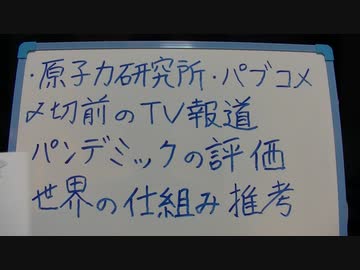 ・原子力研究所・パブコメ
〆切前のTV報道
パンデミックの評価
世界の仕組み推考